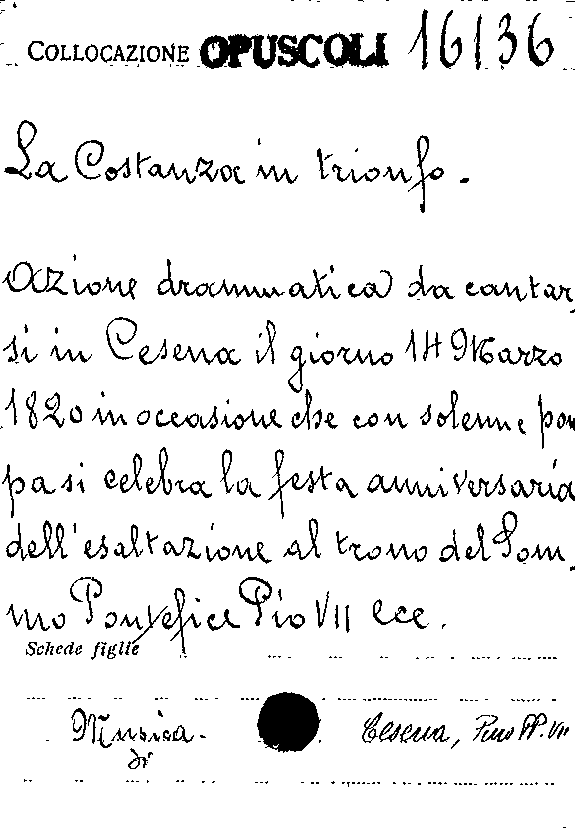 COLLOCAZIONE OPUSCOLI 16136
La Costanza in trionfo.
Azione drammatica da cantar,
si in Cesena il giorno 14 Marzo
1820 in occasione che con solenne pom
pa si celebra la festa anniversaria
dell'esaltazione al trono del Som.
mo Pontefice Pio VII ecc.
Schede figlie
Musica. Cesena, Pius PP. VII
di